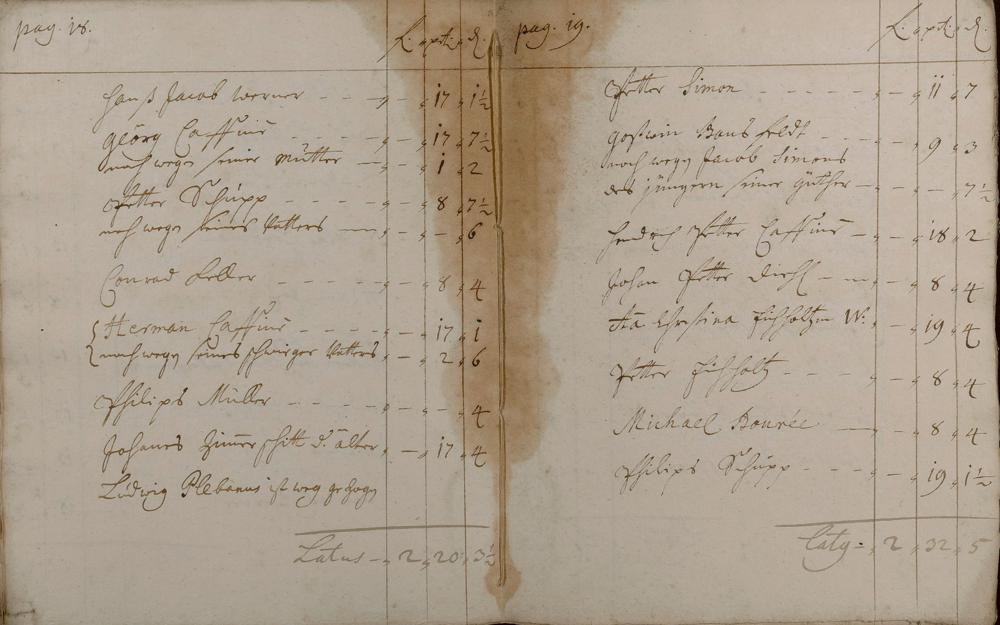 pag. 18.
L. a pt. d.
Hanß Jacob Werner - - - 17 1½
Geörg Caffius - - - 17 7½
noch wegen seiner Mutter - 1 2
Petter Schupp - - - 8 7½
noch wegen seines Vatters - - 6
Conrad Keller - - - 8 4
Herman Caffius - - - 17 1
noch wegen seines schwieger Vatters - 2 6
Philips Müller - - - 4
Johanes Zimerschitt d. älter - 17 4
Ludwig Plebanus ist weg gezogen
Latus - 2 20 3½
pag. 19.
L. a pt. d.
Petter Simon - - - 11 7
Goßwin Bausfeldt - 9 3
noch wegen Jacob Simons
des jüngern seiner Güther - - 7½
Henrich Petter Caffius - 18 2
Johan Petter Diehl - 8 4
An̄a Christina Fichholtzin W. - 19 4
Petter Fichholtz - - - 8 4
Michael Bourée - 8 4
Philips Schupp - - - 19 1½
Latus - 2 32 5